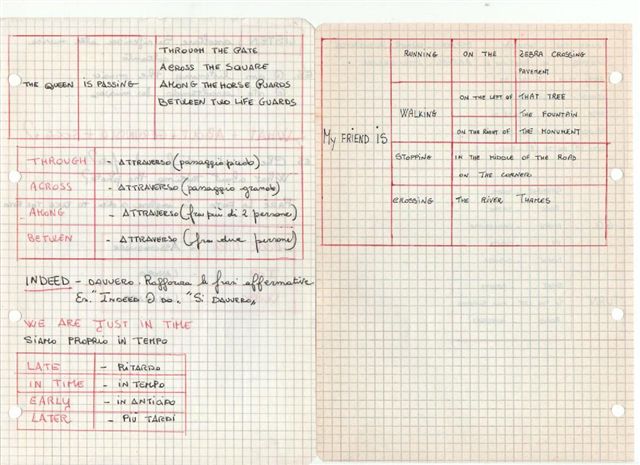 THROUGH THE GATE
ACROSS THE SQUARE
THE QUEEN IS PASSING AMONG THE HORSE GUARDS
BETWEEN TWO LIFE GUARDS
THROUGH - ATTRAVERSO (passaggio piccolo)
ACROSS - ATTRAVERSO (passaggio grande)
AMONG - ATTRAVERSO (fra più di 2 persone)
BETWEEN - ATTRAVERSO (fra due persone)
INDEED - DAVVERO. Rafforza le frasi affermative
Es. "INDEED I DO. "Sì DAVVERO"
WE ARE JUST IN TIME
SIAMO PROPRIO IN TEMPO
LATE - RITARDO
IN TIME - IN TEMPO
EARLY - IN ANTICIPO
LATER - PIÙ TARDI
RUNNING ON THE ZEBRA CROSSING
PAVEMENT
ON THE LEFT OF THAT TREE
WALKING THE FOUNTAIN
ON THE RIGHT OF THE MONUMENT
MY FRIEND IS
STOPPING IN THE MIDDLE OF THE ROAD
ON THE CORNER
CROSSING THE RIVER THAMES